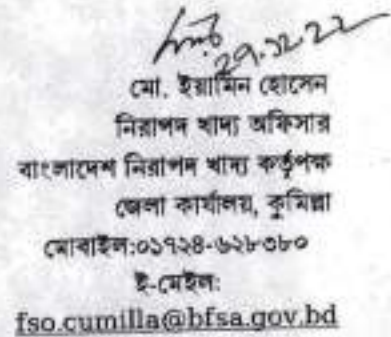 29.12.22
মো. ইয়ামিন হোসেন
নিরাপদ খাদ্য অফিসার
বাংলাদেশ নিরাপদ খাদ্য কর্তৃপক্ষ
জেলা কার্যালয়, কুমিল্লা
মোবাইল:০১৭২৪-৬২৮৩৮০
ই-মেইল:
fso.cumilla@bfsa.gov.bd